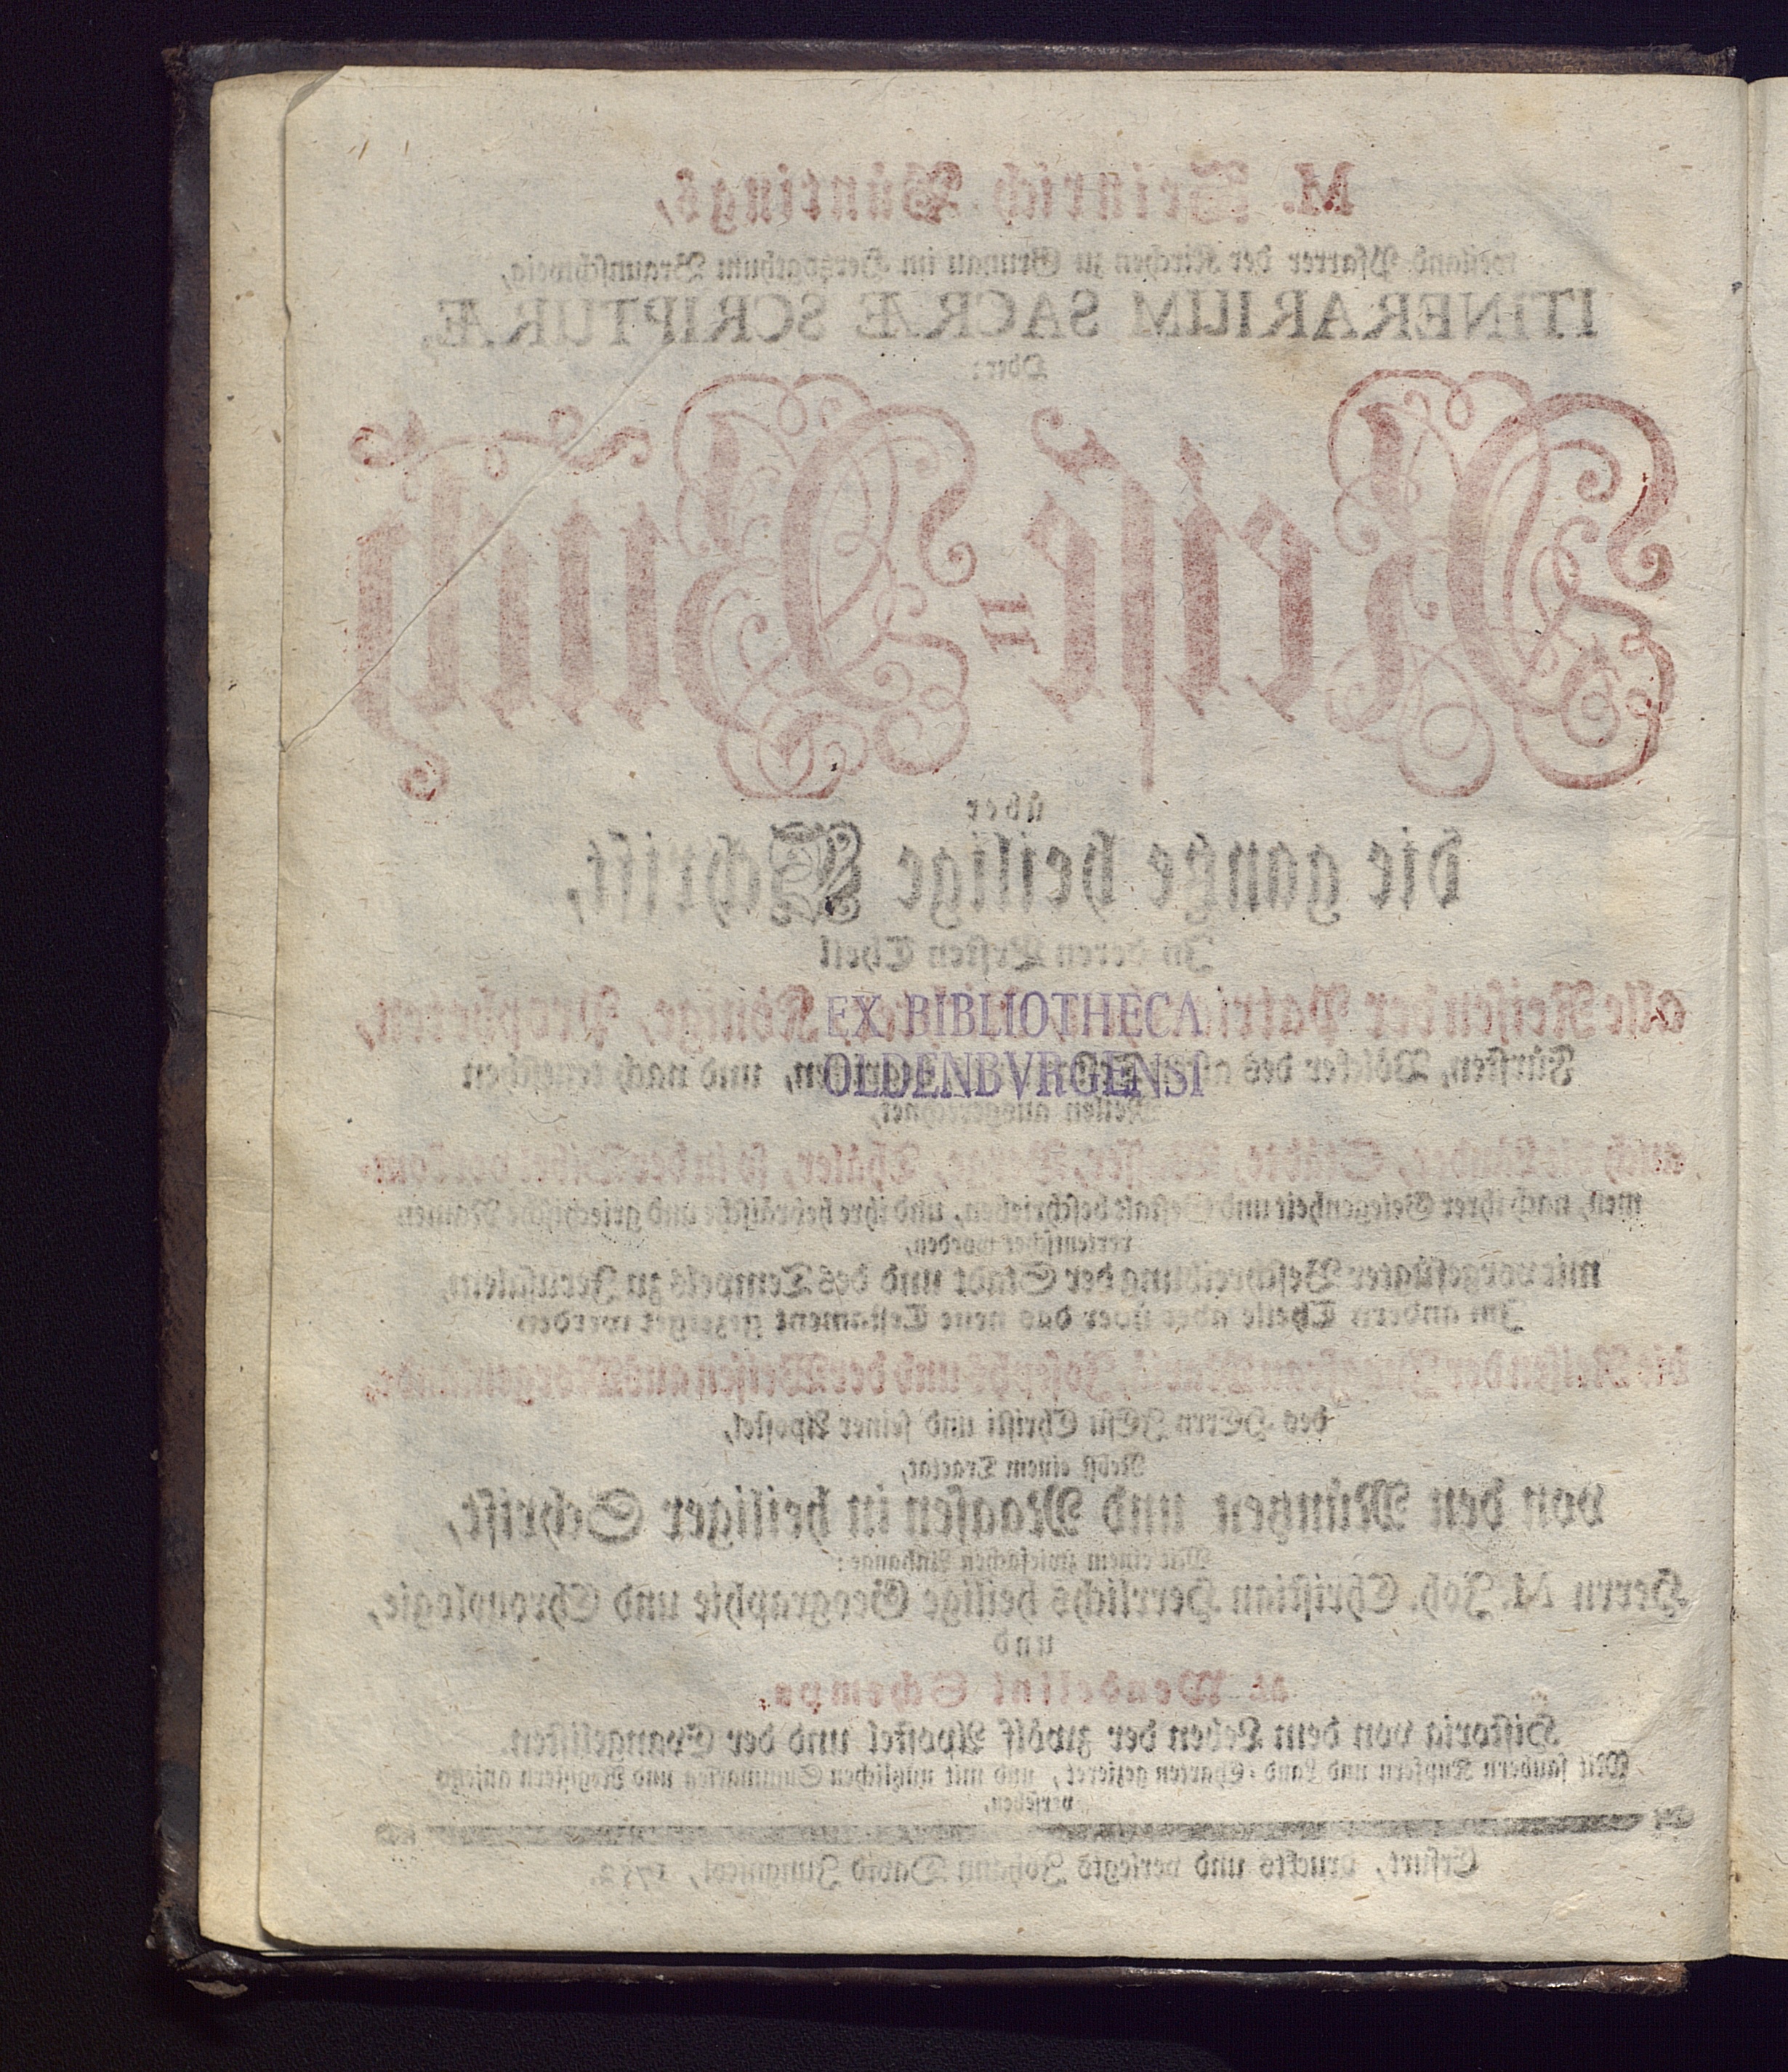 M. Heinrich Büntings,
weiland Pfarrer der Kirchen zu Grunau im Herzogthum Braunschweig,
ITINERARIUM SACRÆ SCRIPTURÆ,
Oder:
Reise-Buch
über
die gantze heilige Schrift,
In deren Ersten Theil
alle Reisen der Könige, Propheten,
EX BIBLIOTHECA
Fürsten, Völcker des und nach teutschen
OLDENBVRGENSI
Meilen ausgerechnet,
auch Städte, Thäler, so in der Bibel vorkom-
men, nach ihrer Gelegenheit und Gestalt beschrieben, und ihre hebräische und griechische Namen
verteutschet worden,
mit vorgefügter Beschreibung der Stadt und des Tempels zu Jerusalem,
Im andern Theile aber über das neue Testament gezeiget werden
die Reisen der Josephs und der Weisen aus Morgenlande,
des HErrn JEsu Christi und seiner Apostel,
Nebst einem Tractat,
von den Müntzen und Maasen in heiliger Schrift,
Mit einem zwiefachen Anhange:
Herrn M. Joh. Christian Herrlichs heilige Geographie und Chronologie,
und
M. Wendelini Schemps,
Historia von dem Leben der zwölf Apostel und der Evangelisten.
Mit saubern Kupfern und Land-Charten gezieret, und mit nützlichen Summarien und Registern anjetzo
versehen,
Erfurt, druckts und verlegts Johann David Jungnicol, 1752.